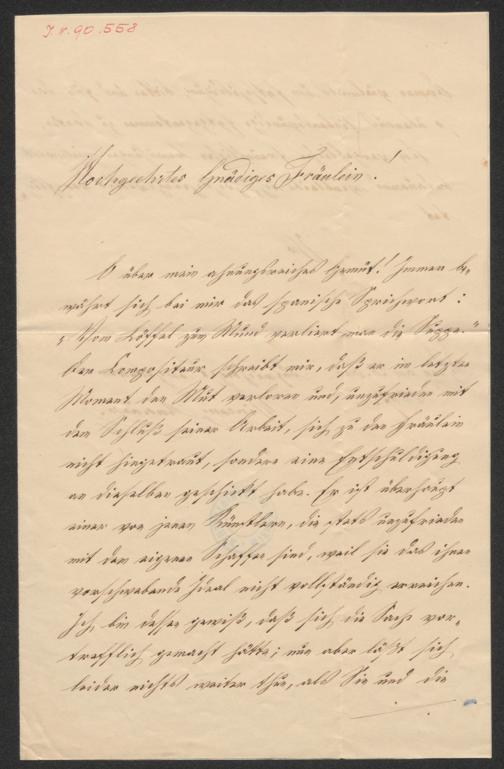 J.N. 90.558
Hochgeehrtes Gnädiges Fräulein!
O über mein ahnungsreiches Gemüt! Immer be-
währt sich bei mir das spanische Sprichwort:
„Vom Löffel zum Mund verliert man die Suppe."
Der Compositeur schreibt mir, daß er im letzten
Moment den Mut verloren und, unzufrieden mit
dem Schluß seiner Arbeit, sich zu dem Fräulein
nicht hingetraut, sondern eine Entschuldigung
an dieselbe geschickt habe. Er ist überhaupt
einer von jenen Künstlern, die stets unzufrieden
mit dem eigenen Schaffen sind, weil sie das ihnen
vorschwebende Ideal nicht vollständig erreichen.
Ich bin dessen gewiß, daß sich die Sache vor-
trefflich gemacht hätte; nun aber läßt sich
leider nichts weiter thun, als Sie und die